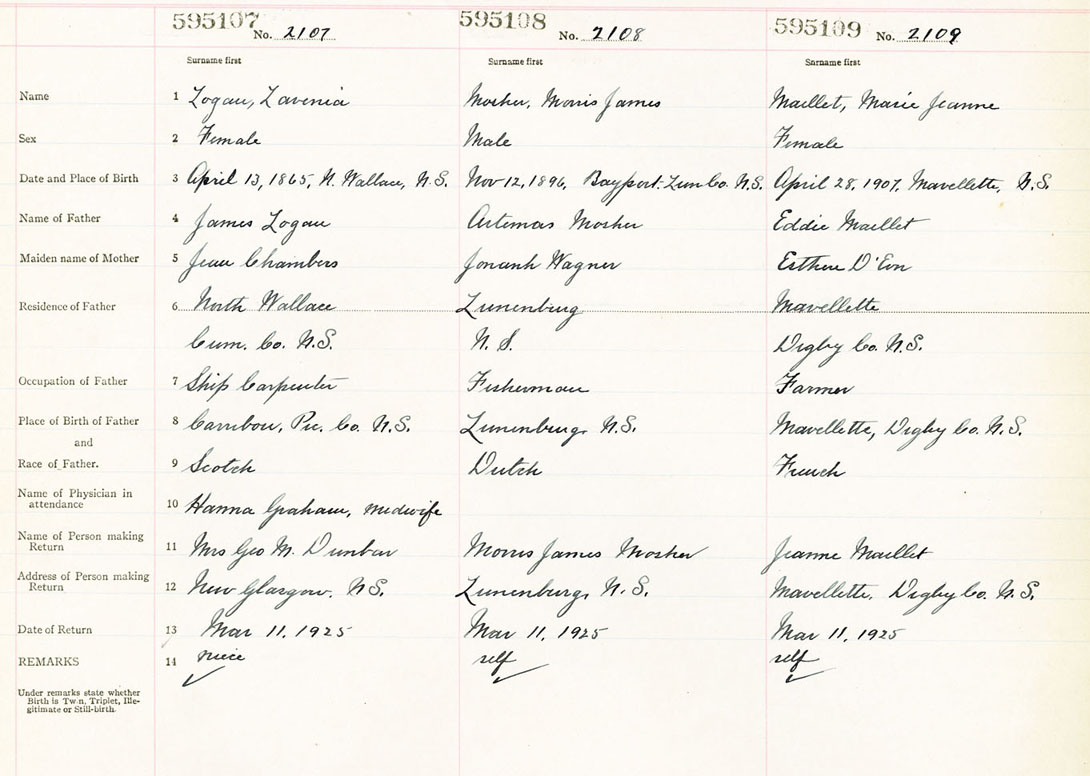 595107 No. 2107 595108 No. 2108 595109 No. 2109
Surname first Surname first Surname first
Name 1 Logan, Lavenia Mosher, Morris James Maillet, Marie Jeanne
Sex 2 Female Male Female
Date and Place of Birth 3 April 13, 1865, N. Wallace, N.S. Nov 12, 1896, Bayport. Lun Co. N.S. April 28, 1907, Mavellette, N.S.
Name of Father 4 James Logan Artemas Mosher Eddie Maillet
Maiden name of Mother 5 Jean Chambers Wagner D'Eon
Residence of Father 6 North Wallace Lunenburg Mavellette
Cum. Co. N.S. N.S. Digby Co. N.S.
Occupation of Father 7 Ship Carpenter Fisherman Farmer
Place of Birth of Father 8 Carribou, Pic. Co. N.S. Lunenburg, N.S. Mavellette, Digby Co. N.S.
and
Race of Father. 9 Scotch Dutch French
Name of Physician in
attendance 10 Hanna Graham, midwife
Name of Person making
Return 11 Mrs Geo M. Dunbar Morris James Mosher Jeanne Maillet
Address of Person making
Return 12 New Glasgow. N.S. Lunenburg, N.S. Mavellette, Digby Co. N.S.
Date of Return 13 Mar 11, 1925 Mar 11, 1925 Mar 11, 1925
REMARKS 14 niece self self
Under remarks state whether
Birth is Twin, Triplet, Ille-
gitimate or Still-birth.